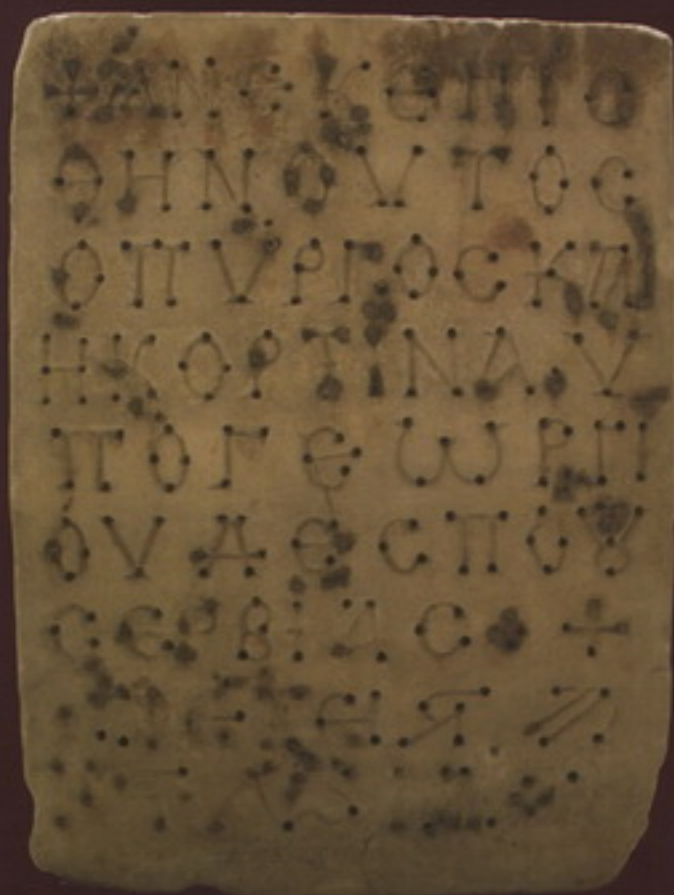 ✝ΑΝΕΚΕΝΙϹ
ΘΗΝΟΥΤΟϹ
ΟΠΥΡΓΟϹΚΑΙ
ΗΚΟΡΤΙΝΑΥ
ΠΟΓΕΩΡΓΙ
ΟΥΔΕϹΠΟΤȢ
ϹΕΡΒΙΑϹ ✝